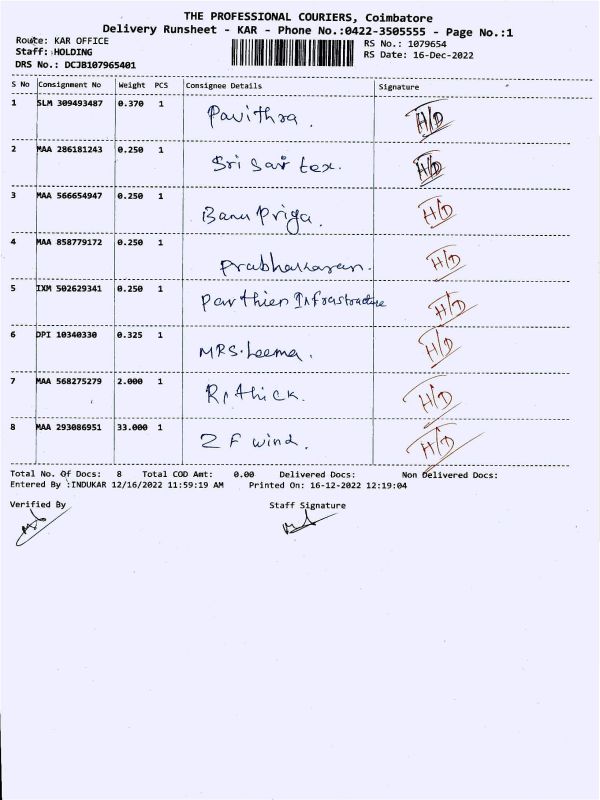 THE PROFESSIONAL COURIERS, Coimbatore
Delivery Runsheet - KAR - Phone No.:0422-3505555 - Page No.:1
Route: KAR OFFICE
RS No.: 1079654
Staff: HOLDING
RS Date: 16-Dec-2022
DRS No.: DCJB107965401
S No Consignment No Weight PCS Consignee Details Signature
1 SLM 309493487 0.370 1 Pavithra. H/D
2 MAA 286181243 0.250 1 Sri Sai tex. H/D
3 MAA 566654947 0.250 1 Banu Priya. H/D
4 MAA 858779172 0.250 1 Prabhakaran. H/D
5 IXM 502629341 0.250 1 Parthien Infrastructure H/D
6 DPI 10340330 0.325 1 MRS. Leema. H/D
7 MAA 568275279 2.000 1 Rithick. H/D
8 MAA 293086951 33.000 1 Z F wind. H/D
Total No. Of Docs: 8 Total COD Amt: 0.00 Delivered Docs: Non Delivered Docs:
Entered By :INDUKAR 12/16/2022 11:59:19 AM Printed On: 16-12-2022 12:19:04
Verified By Staff Signature